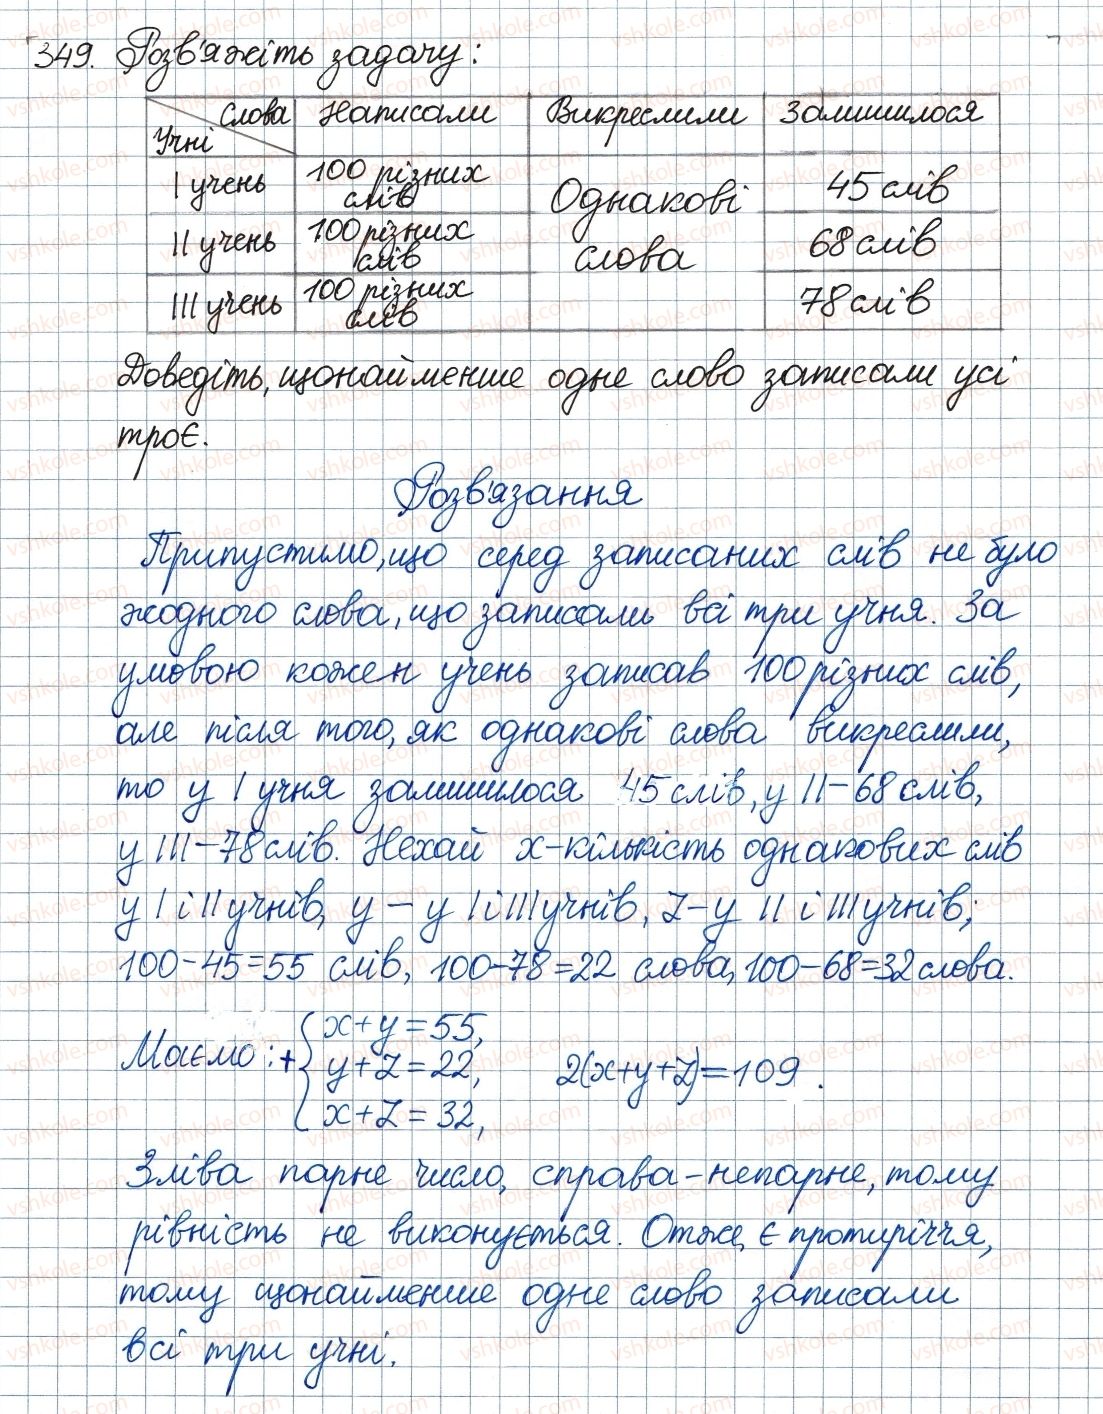 349. Розв'яжіть задачу:
Слова Написали Викреслили Залишилося
Учні
I учень 100 різних слів Однакові слова 45 слів
II учень 100 різних слів 68 слів
III учень 100 різних слів 78 слів
Доведіть, щонайменше одне слово записали усі
троє.
Розв'язання
Припустимо, що серед записаних слів не було
жодного слова, що записали всі три учня. За
умовою кожен учень записав 100 різних слів,
але після того, як однакові слова викреслили,
то у I учня залишилося 45 слів, у II – 68 слів,
у III – 78 слів. Нехай x – кількість однакових слів
у I і II учнів, y – у I і III учнів, z – у II і III учнів;
100 – 45 = 55 слів, 100 – 78 = 22 слова, 100 – 68 = 32 слова.
Маємо: + { x + y = 55,
y + z = 22, 2(x + y + z) = 109.
x + z = 32,
Зліва парне число, справа – непарне, тому
рівність не виконується. Отже, є протиріччя,
тому щонайменше одне слово записали
всі три учні.